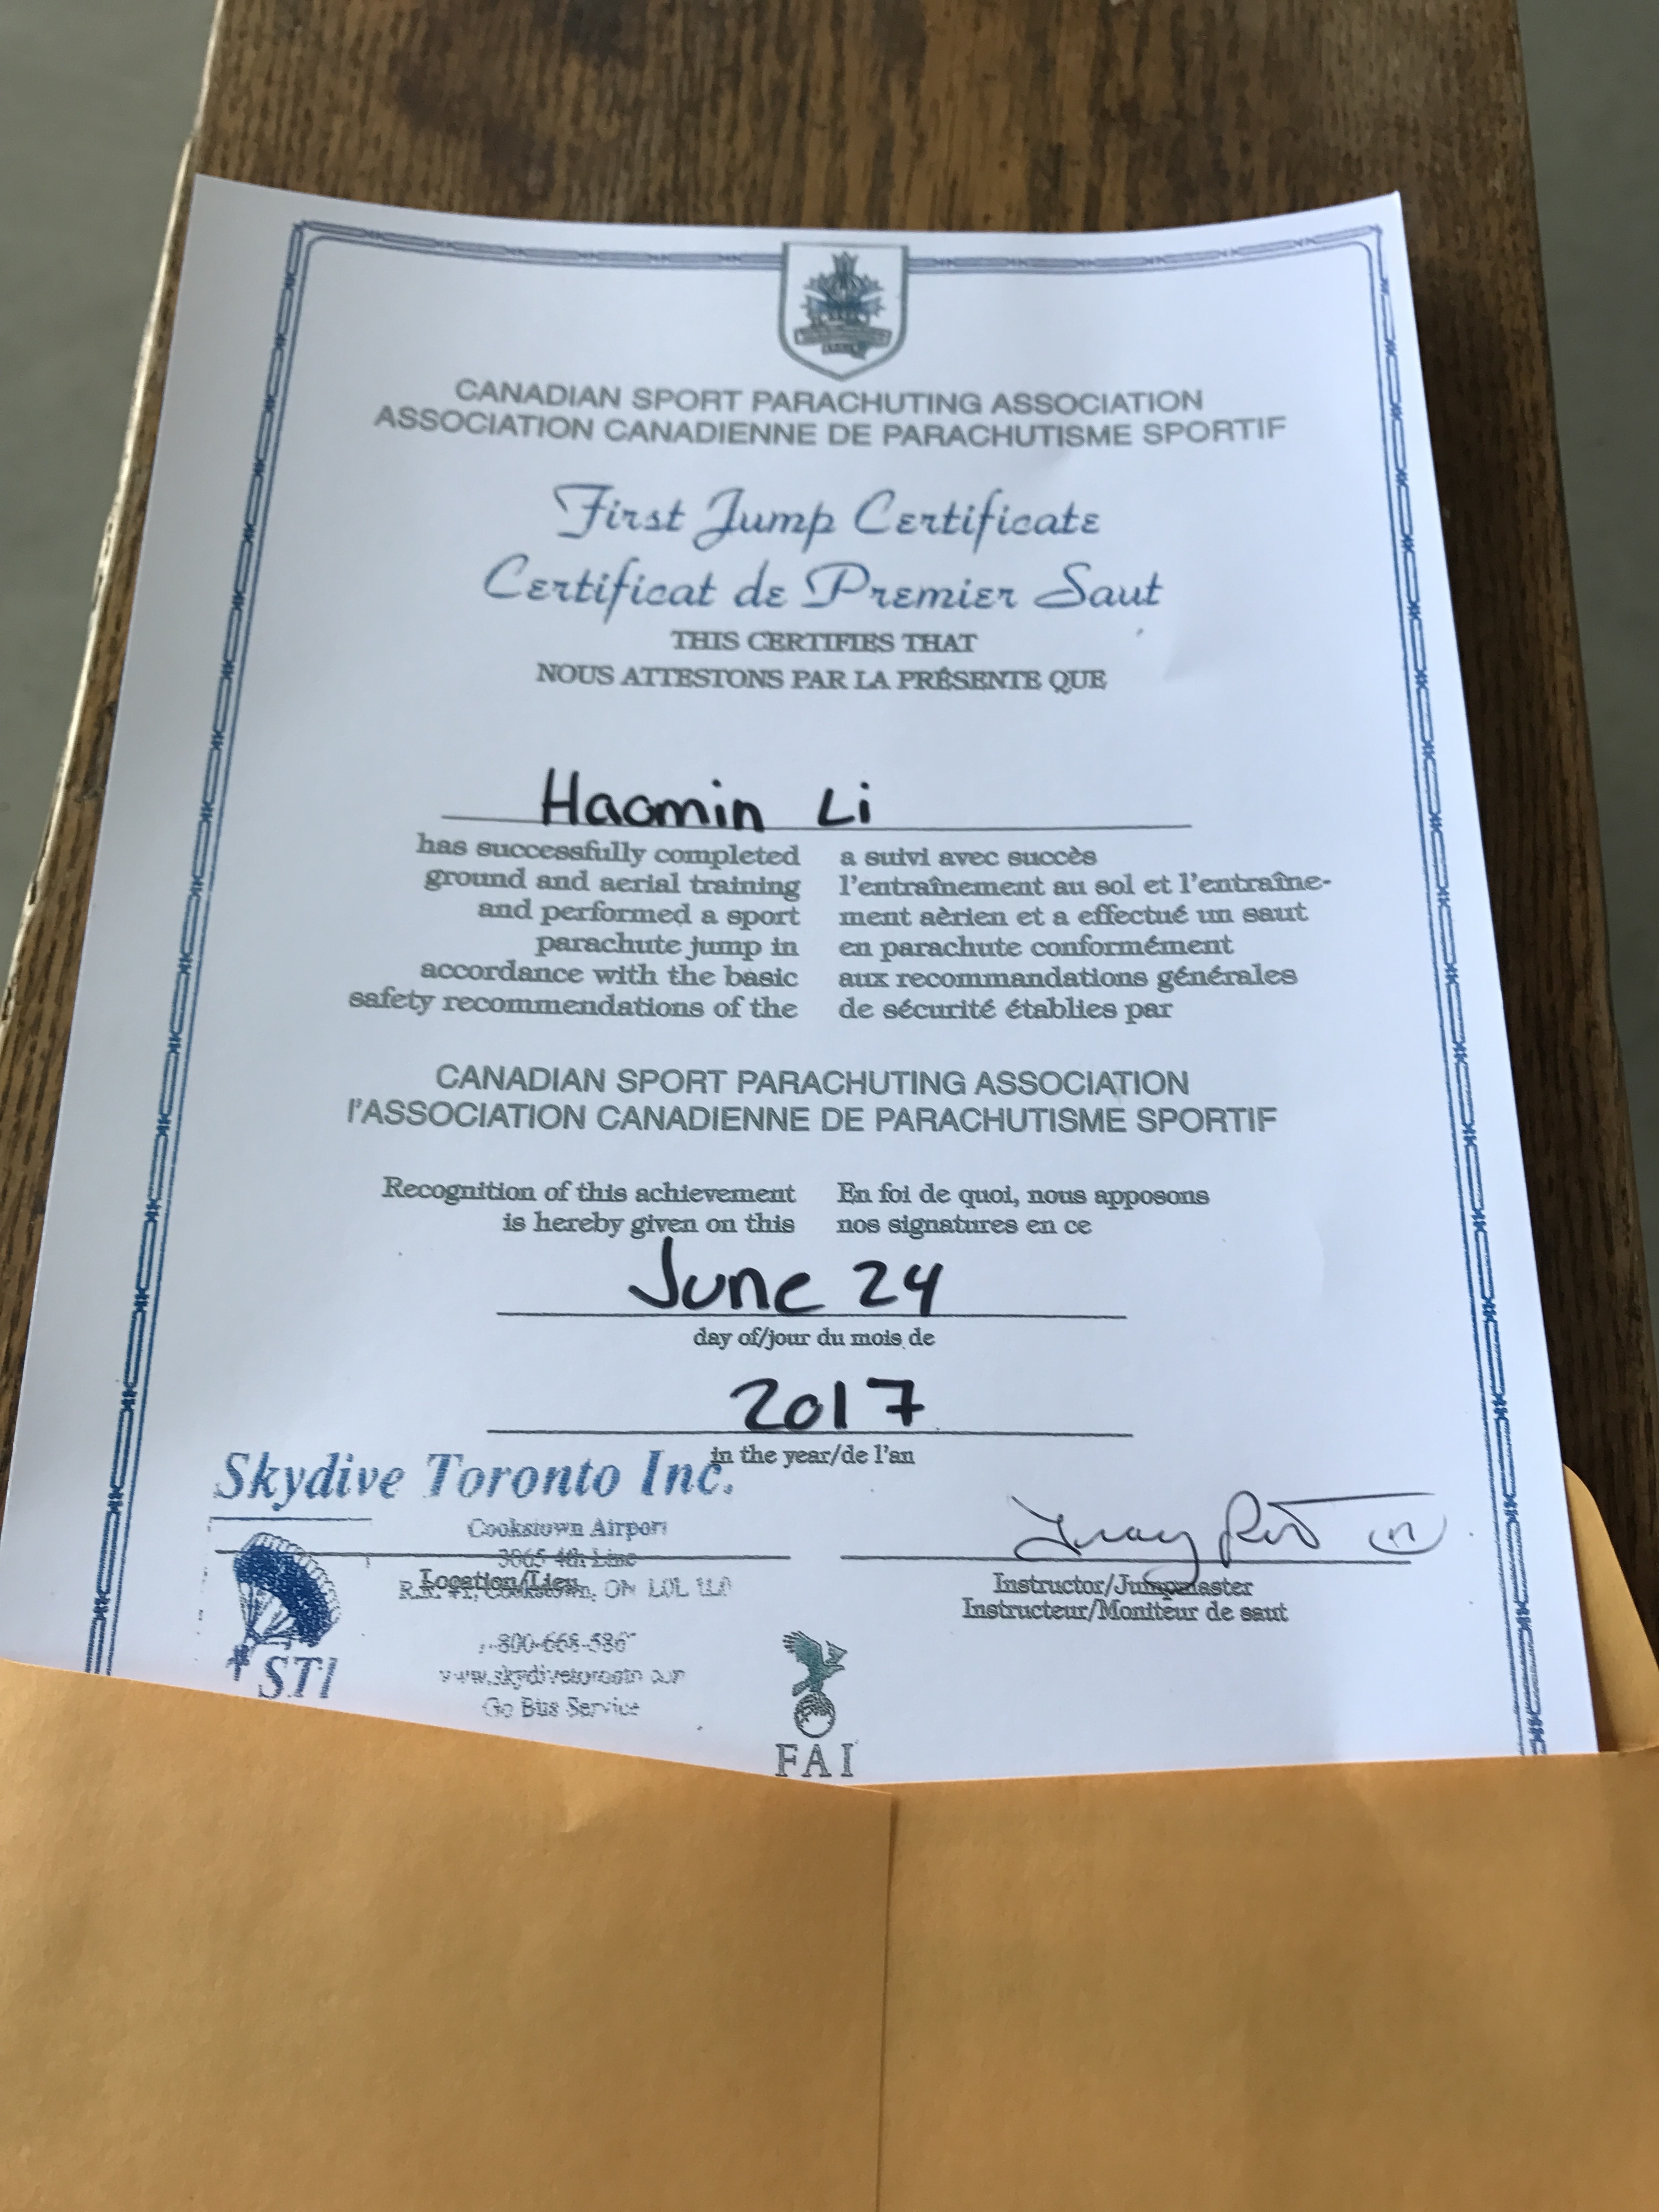 CANADIAN SPORT PARACHUTING ASSOCIATION
ASSOCIATION CANADIENNE DE PARACHUTISME SPORTIF
First Jump Certificate
Certificat de Premier Saut
THIS CERTIFIES THAT
NOUS ATTESTONS PAR LA PRÉSENTE QUE
Haomin Li
has successfully completed
ground and aerial training
and performed a sport
parachute jump in
accordance with the basic
safety recommendations of the
a suivi avec succès
l'entraînement au sol et l'entraîne-
ment aèrien et a effectué un saut
en parachute conformément
aux recommandations générales
de sécurité établies par
CANADIAN SPORT PARACHUTING ASSOCIATION
l'ASSOCIATION CANADIENNE DE PARACHUTISME SPORTIF
Recognition of this achievement
is hereby given on this
En foi de quoi, nous apposons
nos signatures en ce
June 24
day of/jour du mois de
2017
in the year/de l'an
Skydive Toronto Inc.
Cookstown Airport
3065 4th Line
Cookstown, ON L0L 1L0
Location/Lieu
www.skydivetoronto.com
Go Bus Service
STI
Instructor/Jumpmaster
Instructeur/Moniteur de saut
FAI